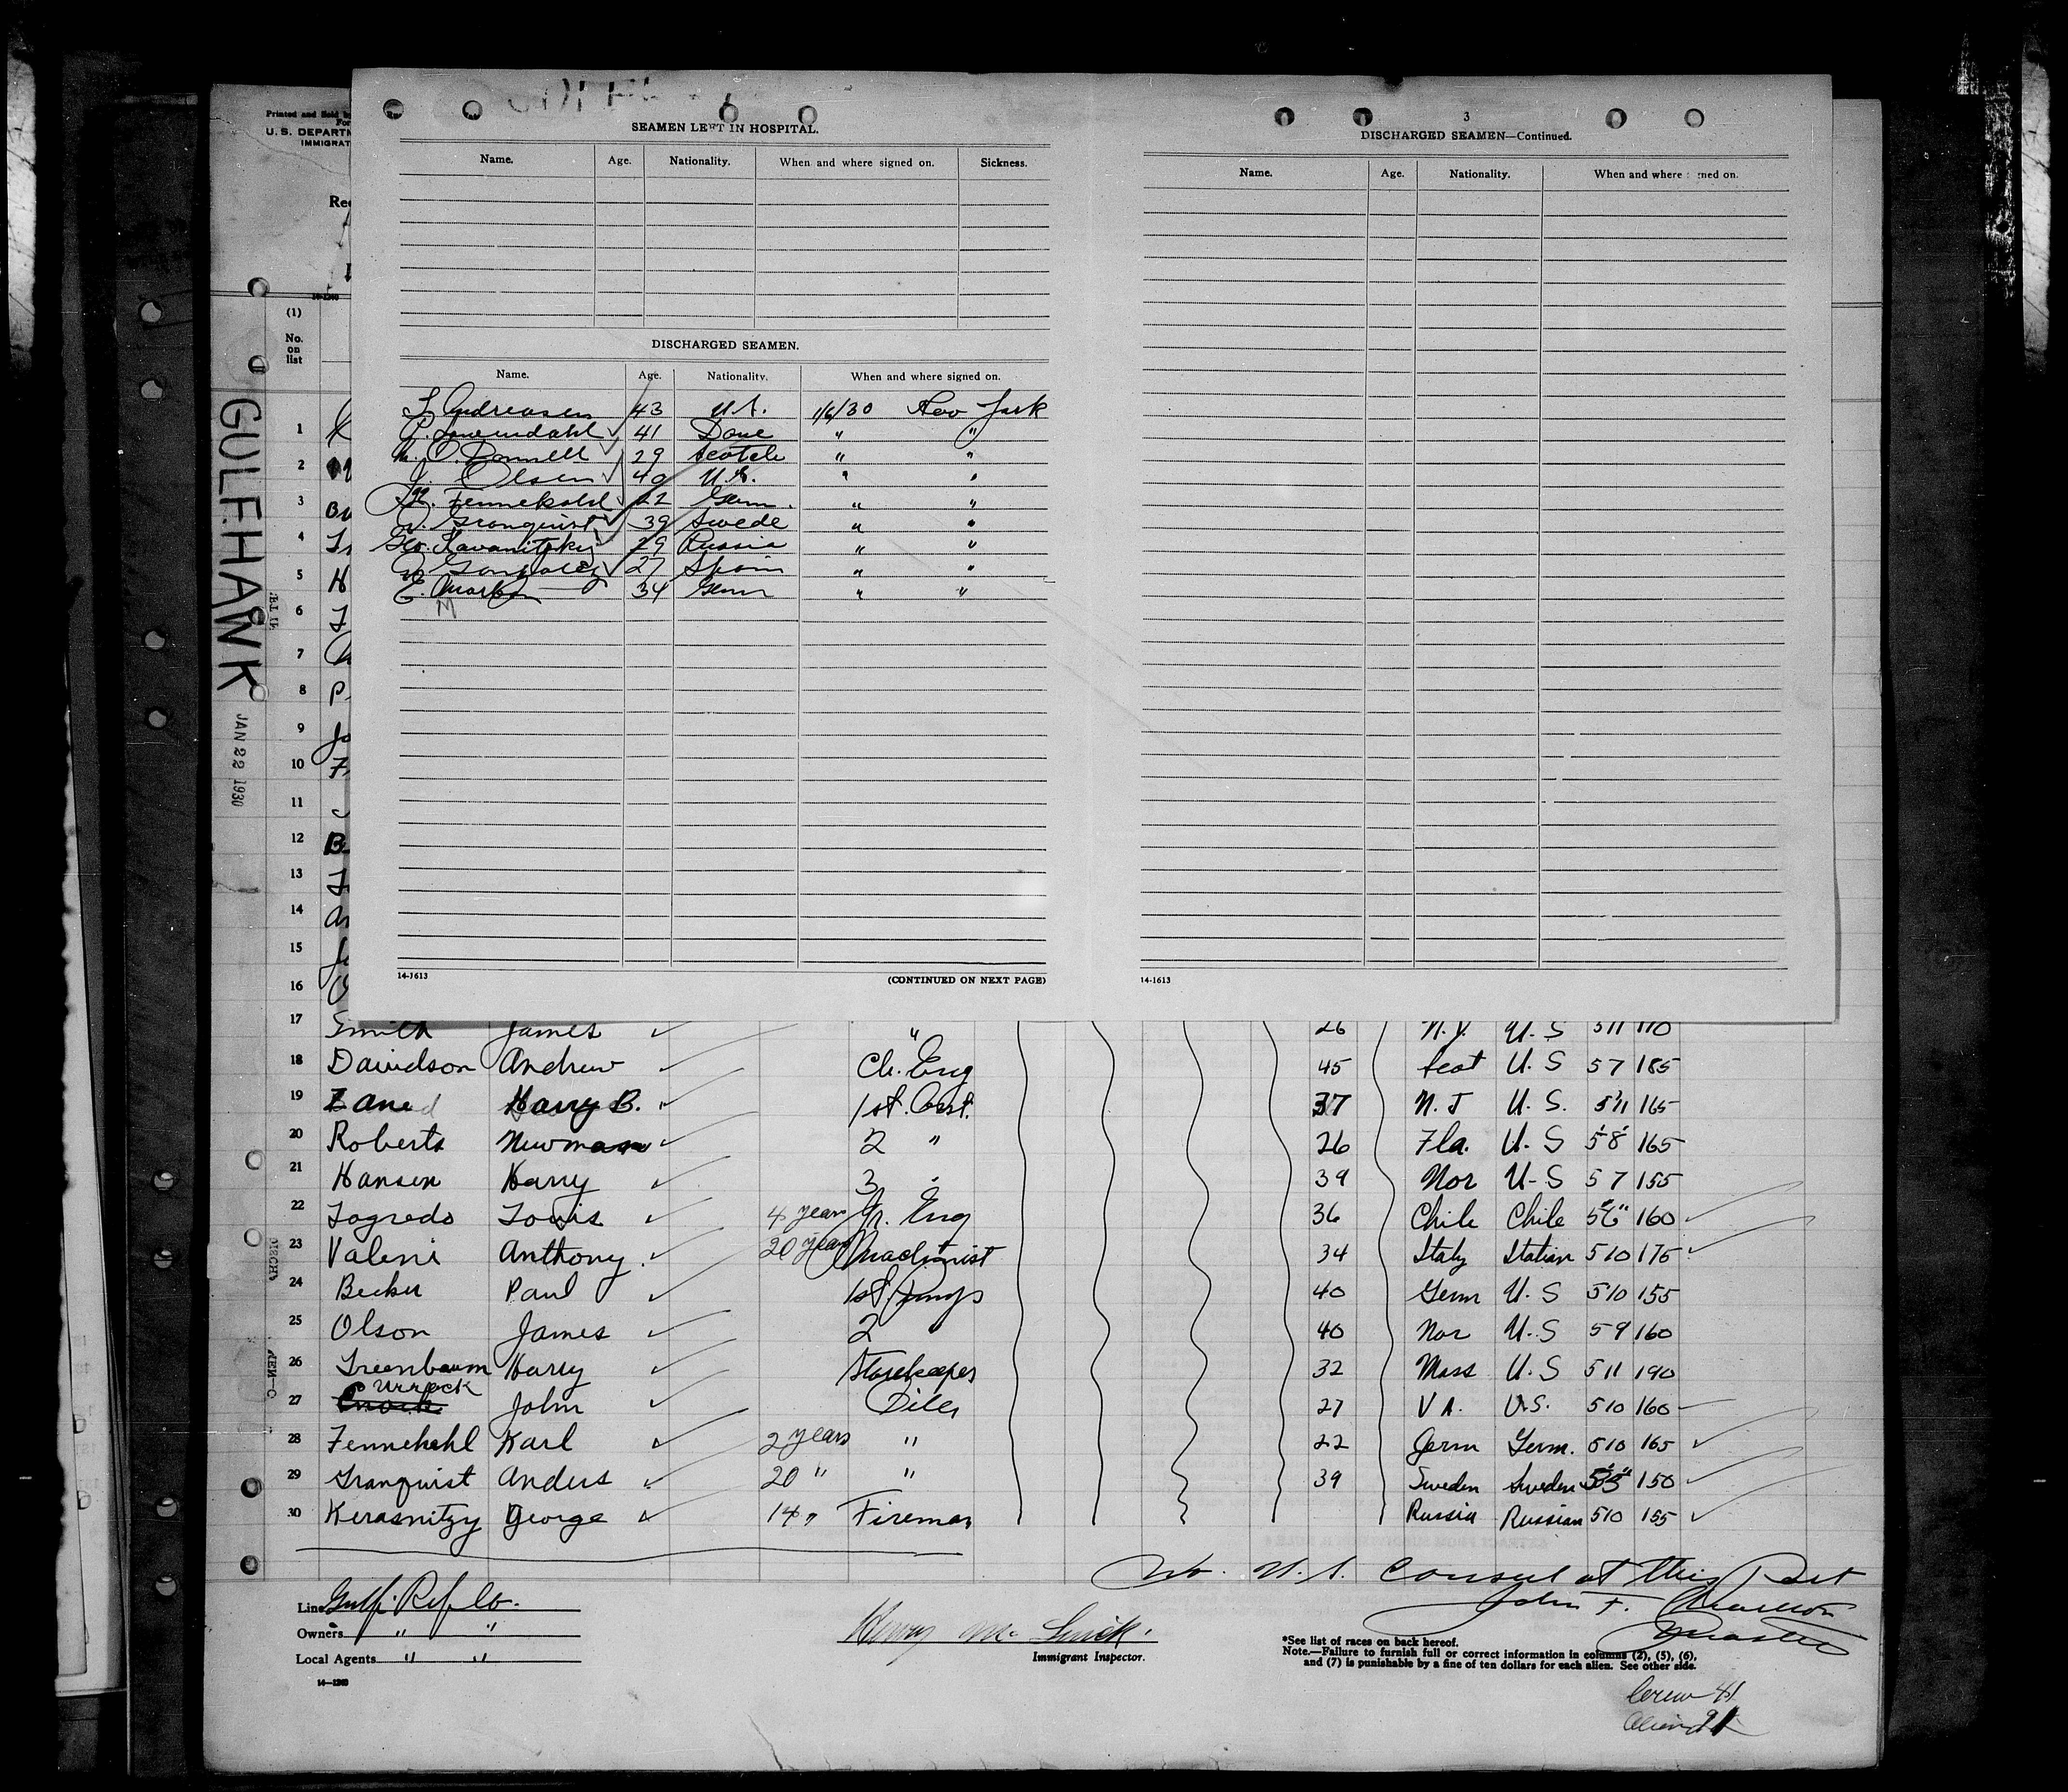 Printed and Sold by
U. S. DEPARTM
IMMIGRAT
Rec
14-1240
(1)
No.
on
list
GULFHAWK
JAN 22 1930
SEAMEN LEFT IN HOSPITAL.
Name. Age. Nationality. When and where signed on. Sickness.
DISCHARGED SEAMEN.
Name. Age. Nationality. When and where signed on.
Andreasen 43 U.S. 1/6/30 New York
41 Dane " "
29 Scotch " "
J. Olsen 40 U.S. " "
Fennekohl 22 Germ. " "
Granquist 39 Swede " "
Geo. 29 Russia " "
27 Spain " "
E. 34 Germ " "
14-1613 (CONTINUED ON NEXT PAGE)
3
DISCHARGED SEAMEN—Continued.
Name. Age. Nationality. When and where signed on.
14-1613
1
2
3
4
5
6
7
8
9
10
11
12
13
14
15
16
17 Smith James " 26 N.Y. U. S 5 11 170
18 Davidson Andrew Ch. Eng 45 Scot U. S 5 7 185
19 Zane Harry B. 1st. Asst. 37 N. J U. S. 5 11 165
20 Roberts Newman 2 " 26 Fla. U. S 5 8 165
21 Hansen Harry 3 " 39 Nor U-S 5 7 155
22 Louis 4 years Jr. Eng 36 Chile Chile 5 6" 160
23 Valeni Anthony 20 years Machinist 34 Italy Italian 5 10 175
24 Becker Paul 1st. Pmp 40 Germ U. S 5 10 155
25 Olson James 2 40 Nor U. S 5 9 160
26 Greenbaum Harry Storekeeper 32 Mass U. S 5 11 190
27 Currock John Oiler 27 VA. U.S. 5 10 160
28 Fennekohl Karl 2 years " 22 Germ Germ. 5 10 165
29 Granquist Anders 20 " " 39 Sweden Sweden 150
30 Kerasnitzy George 14 " Fireman Russia Russian 5 10 155
No. U. S. Consul at this Port
John F.
Master
Line Gulf Ref Co.
Owners " "
Local Agents " "
14—1240
Henry
Immigrant Inspector.
*See list of races on back hereof.
Note.—Failure to furnish full or correct information in columns (2), (5), (6),
and (7) is punishable by a fine of ten dollars for each alien. See other side.
Crew 41
Aliens